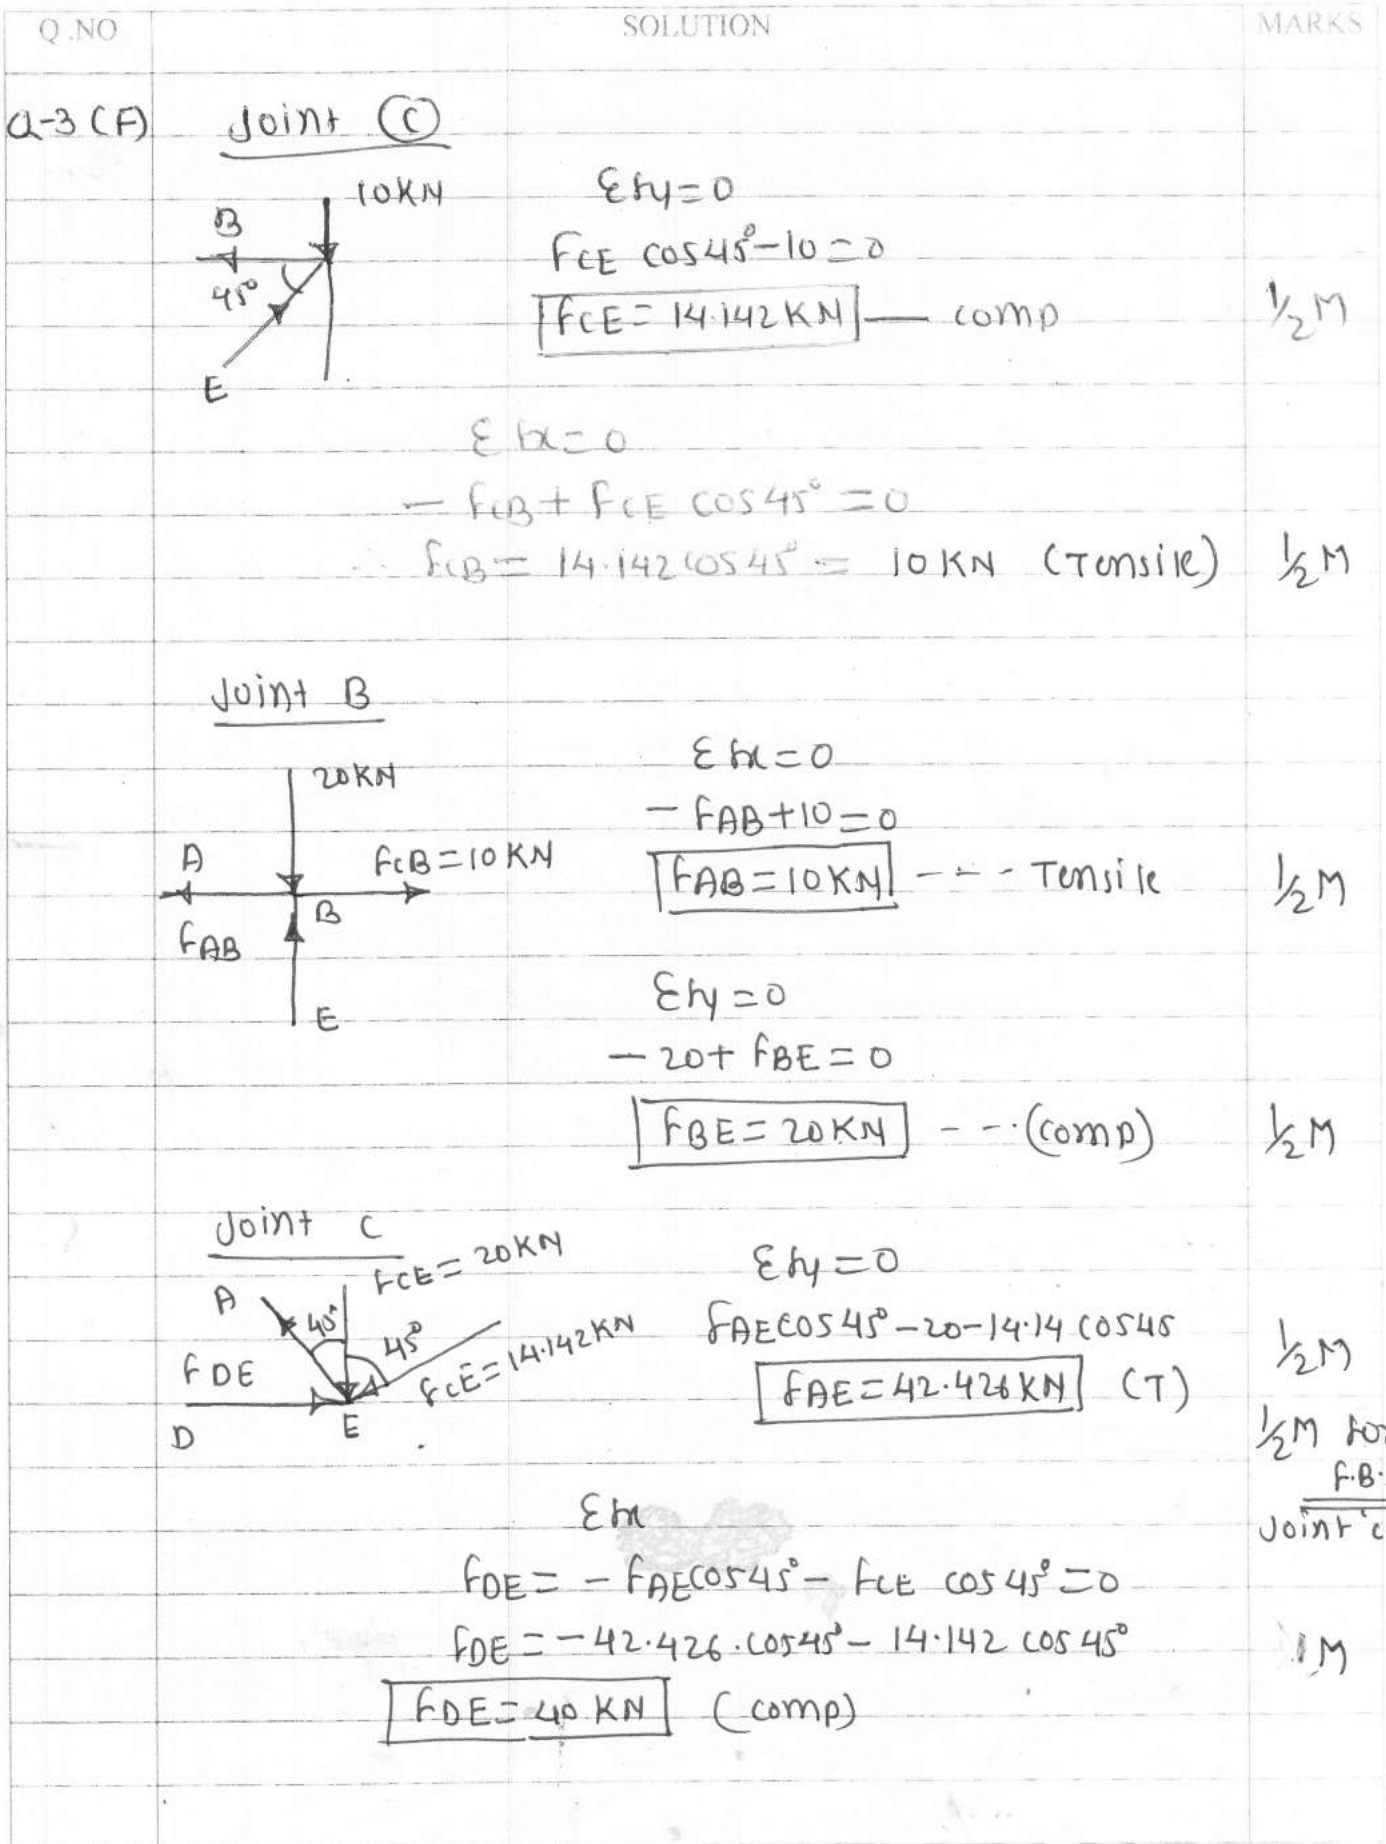 Q.NO SOLUTION MARKS
Q-3 (F) Joint C
10KN
B
45°
E
Σfy=0
FCE cos45°-10=0
FCE = 14.142KN — comp ½M
Σfx=0
- FCB + FCE cos45° = 0
FCB = 14.142 cos45° = 10KN (Tensile) ½M
Joint B
20KN
A FCB=10KN
FAB B
E
Σfx=0
- FAB+10=0
FAB=10KN --- Tensile ½M
Σfy=0
- 20+ FBE = 0
FBE = 20KN --- (comp) ½M
Joint C
FCE = 20KN
A 45°
FDE FCE=14.142KN
D E
Σfy=0
FAEcos45°-20-14.14 cos45 ½M
FAE=42.426KN (T)
½M for
F.B.
Joint 'c
Σfx
FDE = - FAEcos45° - FCE cos45°=0
FDE = -42.426.cos45° - 14.142 cos45° 1M
FDE=40 KN (comp)